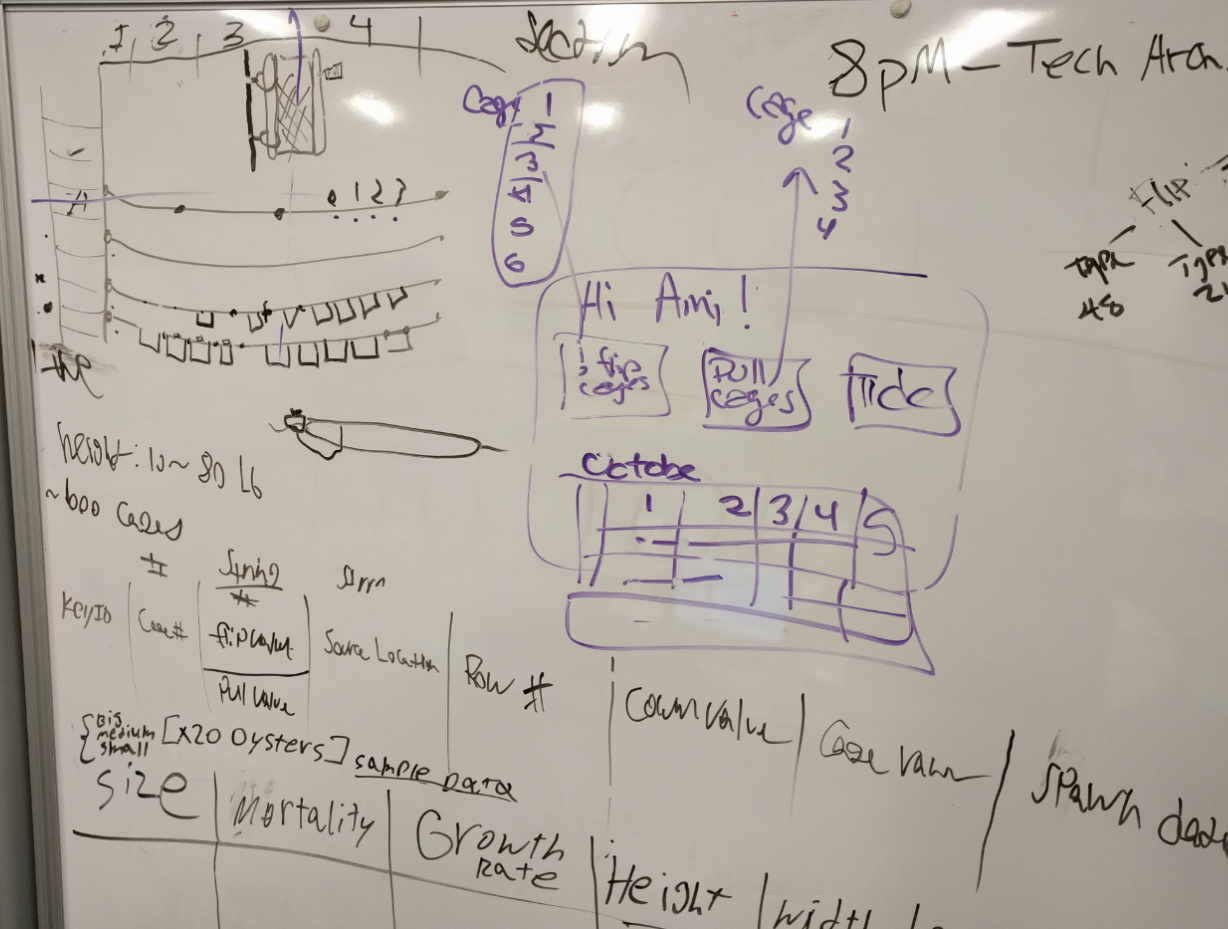 1 2 3 4
Section
8pM - Tech Arch
Cage 1
2
3
4
5
6
Cage 1
2
3
4
A
1 2 3
Flip
Type
48
Type
Hi Ami!
flip cages
Pull cages
Tide
height: 10~80 Lb
~600 Cages
Octobe
1 2 3 4 5
#
String
#
KeyID
Cage#
flip value
Pull value
Source Location
Row #
Count value
Cage value
Spawn date
Big
medium
small
[x20 Oysters]
sample Data
Size
Mortality
Growth Rate
Height
width